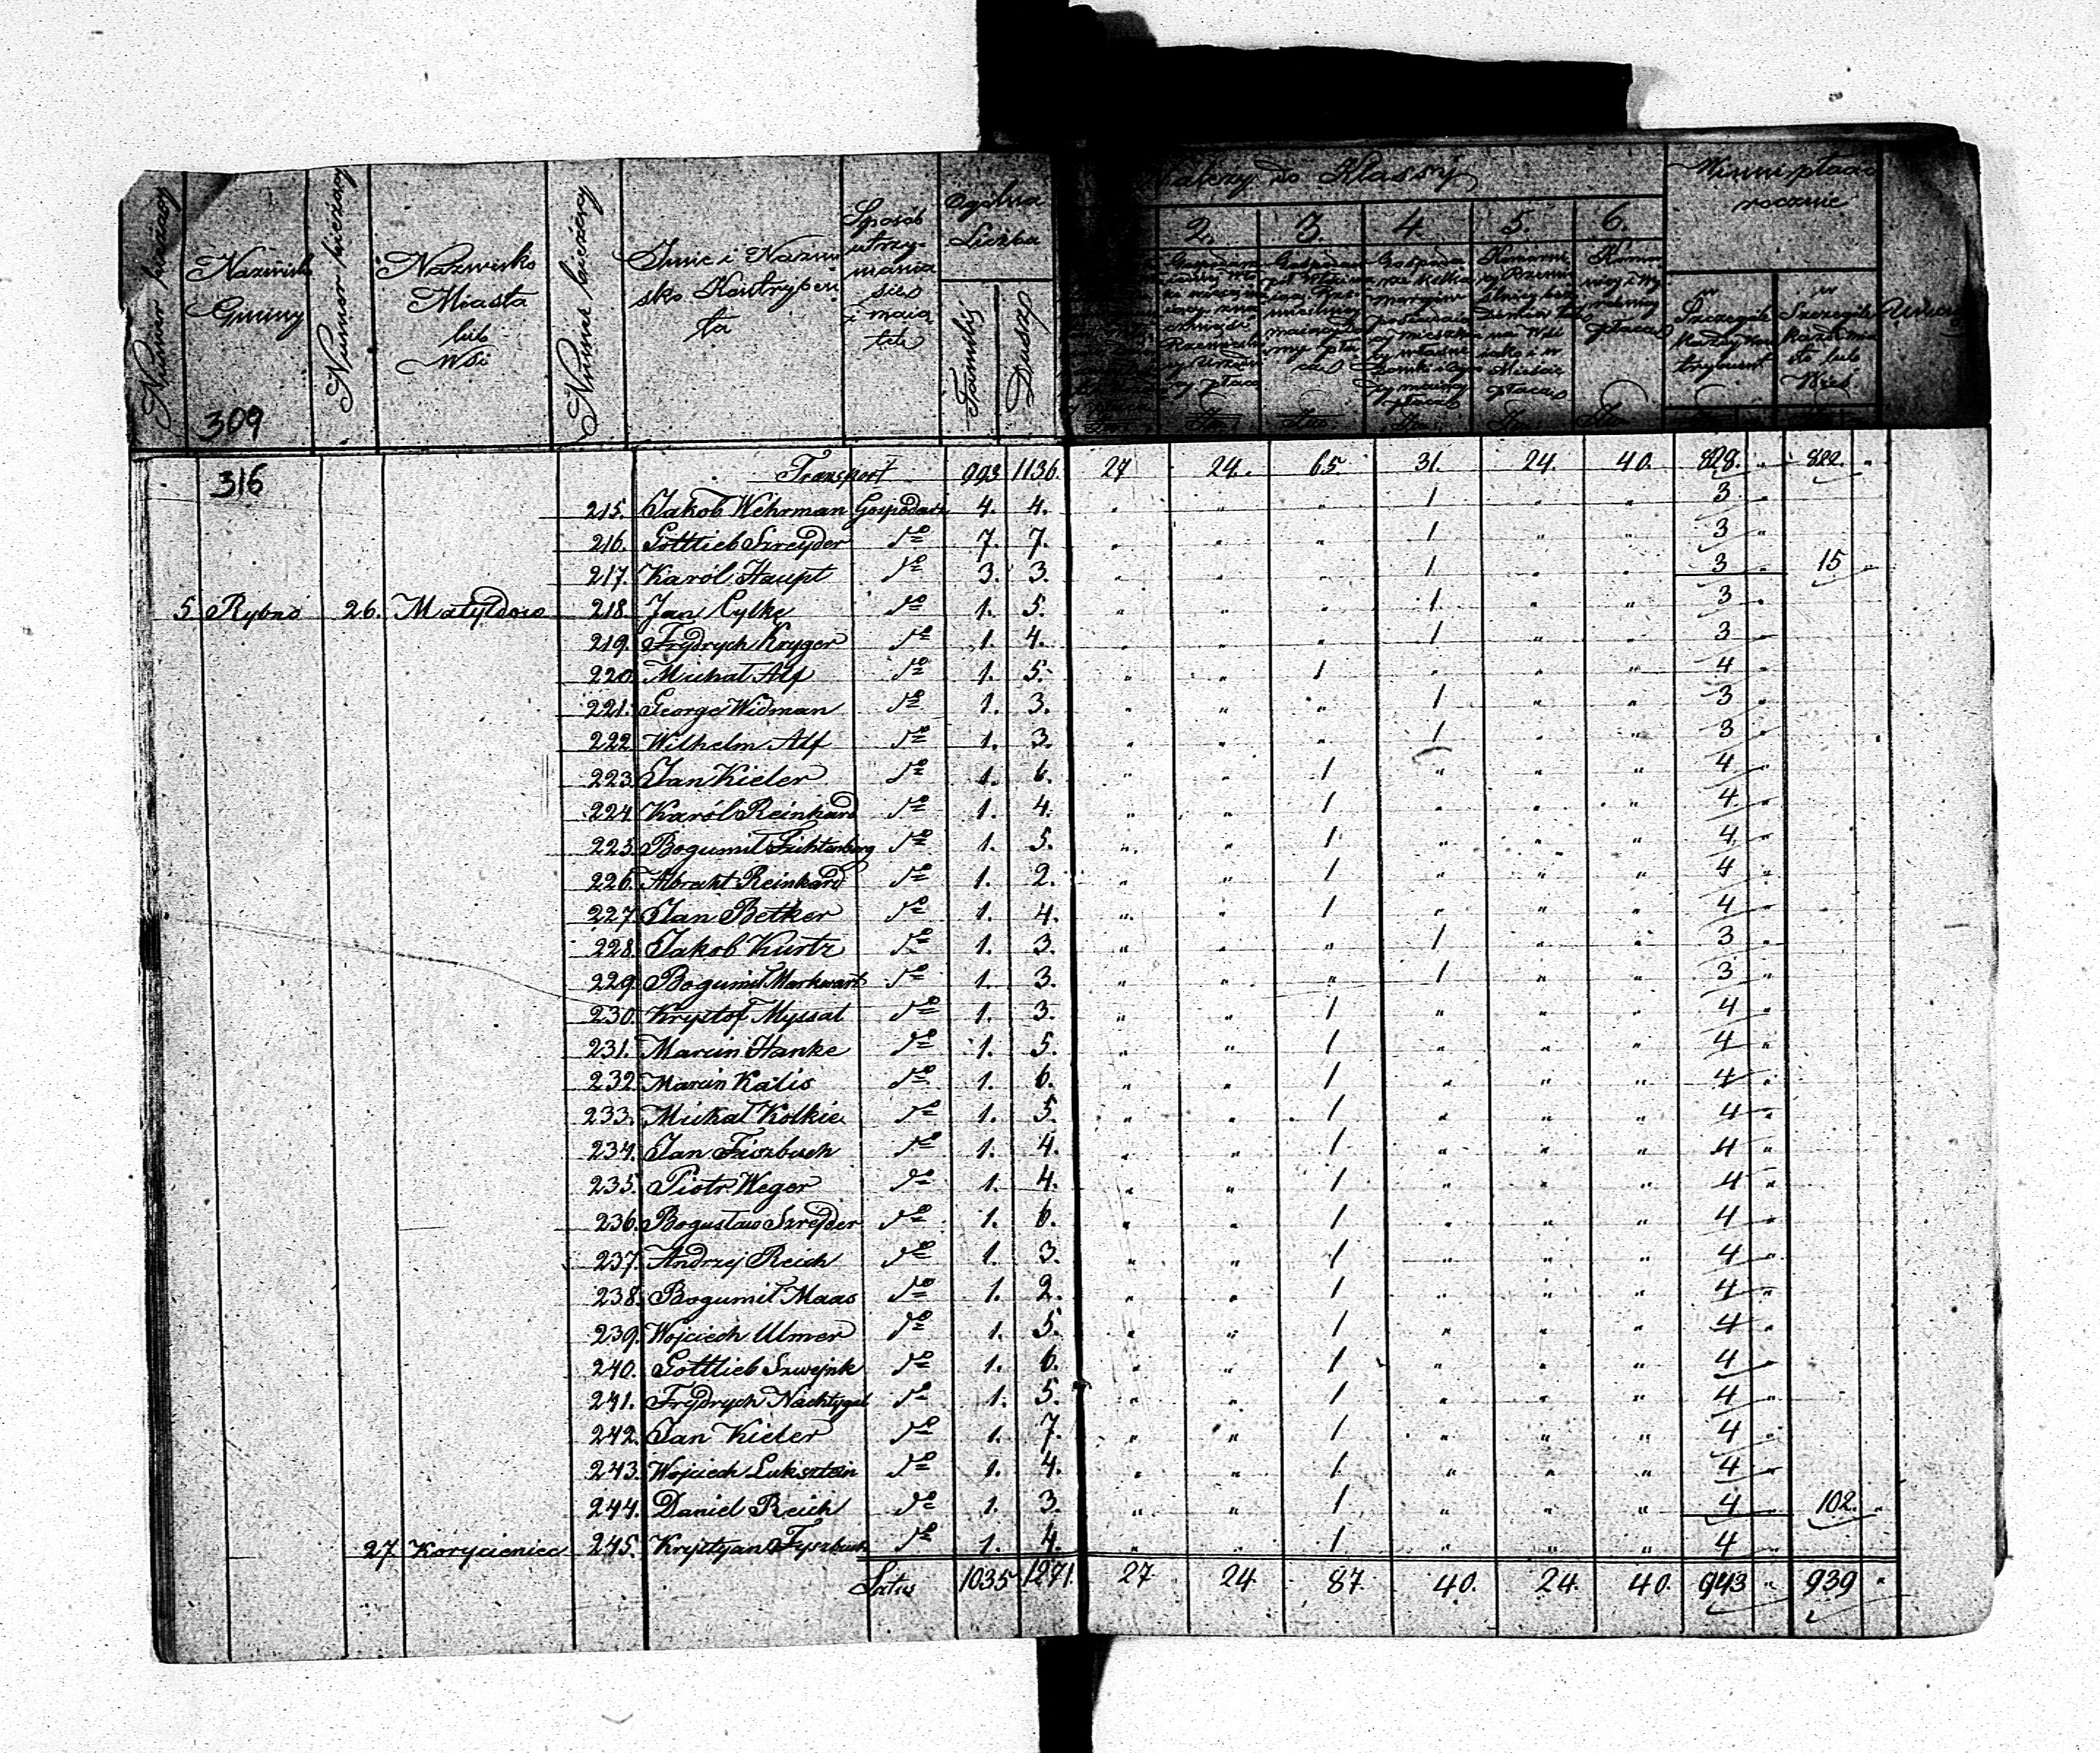 Numer bieżący
Nazwisko Gminy
Numer bieżący
Nazwisko Miasta lub Wsi
Numer bieżący
Imie i Nazwisko Kontrybenta
Sposób utrzymania sie i maiątek
Ogólna Liczba
Familij
Dusz
Należy do Klassy
2. 3. 4. 5. 6.
Winni płacić rocznie
w Szczególe
w Szczególe
309
316 Transport 993 1136. 27 24. 65 31. 24. 40. 828. „ 822. „
215. Jakob Wehrman Gospodarz 4. 4. „ „ „ 1 „ „ 3 „
216. Gottlieb Szreyder do 7. 7. „ „ „ 1 „ „ 3 „
217. Karól Haupt do 3. 3. „ „ „ 1 „ „ 3 „ 15 „
5. Rybno 26. Matyldow 218. Jan Cylke do 1. 5. „ „ „ 1 „ „ 3 „
219. Frydrych Kryger do 1. 4. „ „ „ 1 „ „ 3 „
220. Michał Alf do 1. 5. „ „ 1 „ „ „ 4 „
221. George Widman do 1. 3. „ „ „ 1 „ „ 3 „
222. Wilhelm Alf do 1. 3. „ „ „ 1 „ „ 3 „
223. Jan Kieler do 1. 6. „ „ 1 „ „ „ 4 „
224. Karól Reinhard do 1. 4. „ „ 1 „ „ „ 4 „
225. Bogumił Fichtenberg do 1. 5. „ „ 1 „ „ „ 4 „
226. Albrecht Reinhard do 1. 2. „ „ 1 „ „ „ 4 „
227. Jan Betker do 1. 4. „ „ 1 „ „ „ 4 „
228. Jakob Kurtz do 1. 3. „ „ „ 1 „ „ 3 „
229. Bogumił Markwart do 1. 3. „ „ „ 1 „ „ 3 „
230. Krystof Myssal do 1. 3. „ „ 1 „ „ „ 4 „
231. Marcin Hanke do 1. 5. „ „ 1 „ „ „ 4 „
232. Marcin Kalis do 1. 6. „ „ 1 „ „ „ 4 „
233. Michał Kolkie do 1. 5. „ „ 1 „ „ „ 4 „
234. Jan Fiszbuch do 1. 4. „ „ 1 „ „ „ 4 „
235. Piotr Weger do 1. 4. „ „ 1 „ „ „ 4 „
236. Bogusław Szreyder do 1. 6. „ „ 1 „ „ „ 4 „
237. Andrzej Reich do 1. 3. „ „ 1 „ „ „ 4 „
238. Bogumił Maas do 1. 2. „ „ 1 „ „ „ 4 „
239. Wojciech Ulmer do 1. 5. „ „ 1 „ „ „ 4 „
240. Gottlieb Szwejnk do 1. 6. „ „ 1 „ „ „ 4 „
241. Frydrych Nachtygal do 1. 5. „ „ 1 „ „ „ 4 „
242. Jan Kieler do 1. 7. „ „ 1 „ „ „ 4 „
243. Wojciech Luksztein do 1. 4. „ „ 1 „ „ „ 4 „
244. Daniel Reich do 1. 3. „ „ 1 „ „ „ 4 „ 102. „
27. Korycieniec 245. Krystyan Fyszbuch do 1. 4. „ „ 1 „ „ „ 4 „
Latus 1035 1271. 27. 24. 87. 40. 24. 40. 943 „ 939 „